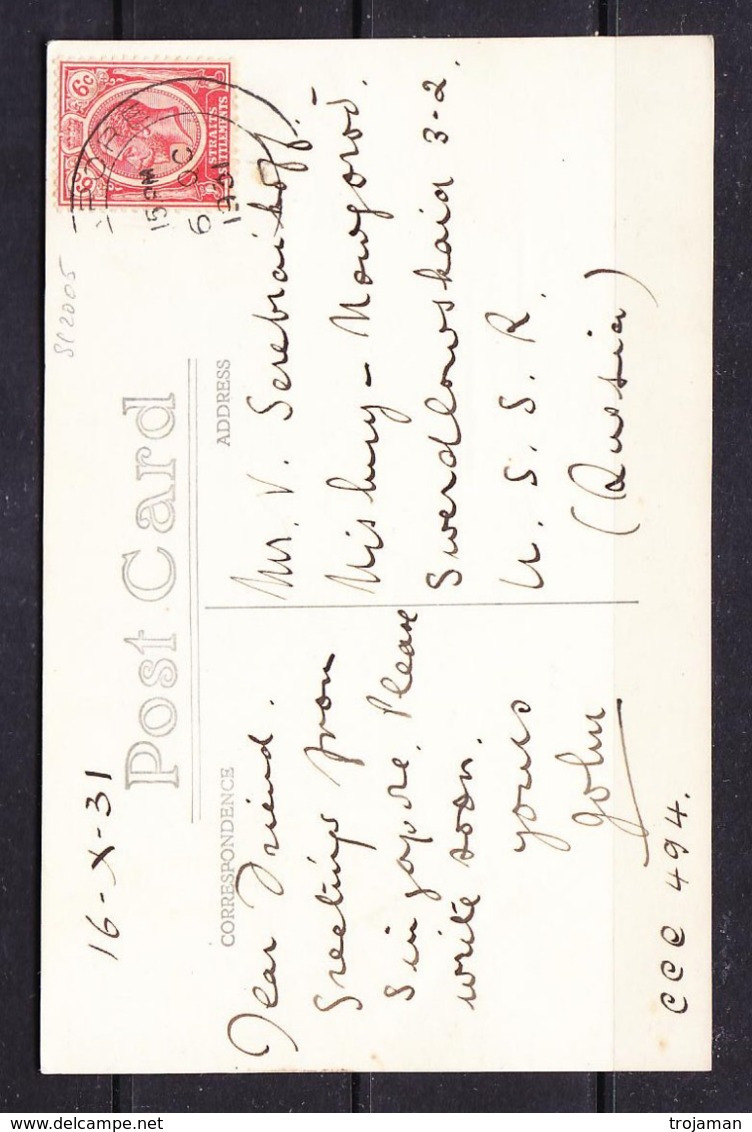 16-X-31
Post Card
CORRESPONDENCE
Dear Friend.
Greetings from
Singapore. Please
write soon.
yours
John
CCC 494.
ADDRESS
Mr. V. Serebraikoff.
Nishny-Nowgorod.
Swerdlowskaia 3-2.
U. S. S. R.
(Russia)
SP2005
6c
6c
STRAITS
SETTLEMENTS
15 PM
6 OC
1931
trojaman